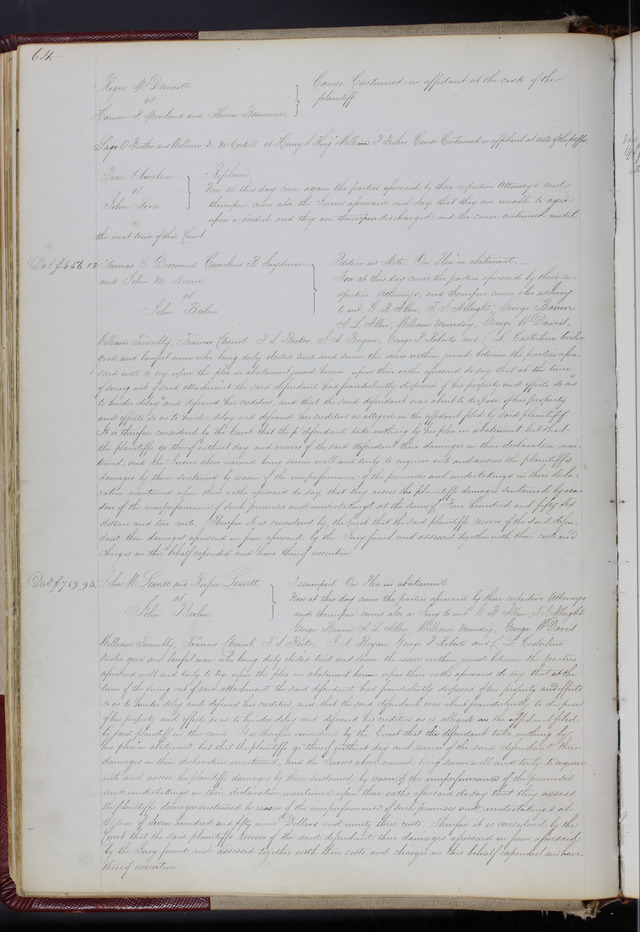 64
Roger Mc Dannell
vs
and Thomas
Cause Continued on affidavit at the costs of the
plaintiff
and William N. Mc vs Henry & William P. Fisher Cause Continued on affidavit at costs of the plffs
vs
John
Replevin
Now at this day come again the parties aforesaid by their respective Attorneys and
thereupon came also the Jurors aforesaid and say that they are unable to agree
upon a verdict and they are thereupon discharged and the cause continued until
the next term of this Court
Dad $456.02
Thomas C. Cornelius K.
and John M.
vs
John
Petition on Note On Plea in abatement
Now at this day come the parties aforesaid by their re-
spective Attorneys, and thereupon comes also a Jury
to wit G. B. Allen, T. J. Albright, George Bannon
A. L. Allen, William Munday, George W Davis,
William Francis F. S. J. A. Bryan, George P. Roberts and C. L. twelve
good and lawful men who being duly elected tried and sworn the issue within joined between the parties afore-
said well to try upon the plea in abatement upon their oaths aforesaid do say that at the time
of suing out of said attachment the said defendant had fraudulently disposed of his property and effects so as
to hinder delay and defraud his creditors, and that the said defendant was about to dispose of his property
and effects so as to hinder delay and defraud his creditors as alleged in the affidavit filed by said plaintiffs
It is therefore considered by the Court that the defendant take nothing by his plea in abatement but that
the plaintiffs go thereof without day and recover of the said defendant their damages in their declaration men-
tioned, and the Jurors above named being sworn well and truly to enquire into and assess the plaintiffs
damages by them sustained by reason of the nonperformance of the promises and undertakings in their decla-
ration mentioned upon their oaths aforesaid do say that they assess the plaintiffs damages sustained by rea-
son of the nonperformance of such promises and undertakings at the sum of Four hundred and fifty six
dollars and two cents. Therefore it is considered by the Court that the said plaintiffs recover of the said defen-
dant their damages aforesaid in form aforesaid by the Jury found and assessed together with their costs and
charges in this behalf expended and have thereof execution
Dad $759.93.
John W. Leavitt and Rufus Leavitt
vs
John
Assumpsit On Plea in abatement
Now at this day come the parties aforesaid by their respective Attorneys
and thereupon comes also a Jury to wit G. B. Allen, T. J. Albright
George Bannon A. L. Allen, William Munday, George W Davis
William Francis F. S. J. A. Bryan, George P. Roberts and C. L.
twelve good and lawful men who being duly elected tried and sworn the issue within joined between the parties
aforesaid well and truly to try upon the plea in abatement upon their oaths aforesaid do say that at the
time of the suing out of said attachment the said defendant had fraudulently disposed of his property and effects
so as to hinder delay and defraud his creditors, and that the said defendant was about fraudulently to dispose
of his property and effects so as to hinder delay and defraud his creditors as is alleged in the affidavit filed
by said plaintiffs in this cause. It is therefore considered by the Court that the defendant take nothing by
his plea in abatement but that the plaintiffs go thereof without day and recover of the said defendant their
damages in their declaration mentioned, and the Jurors above named being sworn well and truly to enquire
into and assess the plaintiffs damages by them sustained by reason of the nonperformance of the promises
and undertakings in their declaration mentioned upon their oaths aforesaid do say that they assess
the plaintiffs damages sustained by reason of the nonperformance of such promises and undertakings at
the sum of Seven hundred and fifty nine Dollars and ninety three cents. Therefore it is considered by the
Court that the said plaintiffs recover of the said defendant their damages aforesaid in form aforesaid
by the Jury found and assessed together with their costs and charges in this behalf expended and have
thereof execution